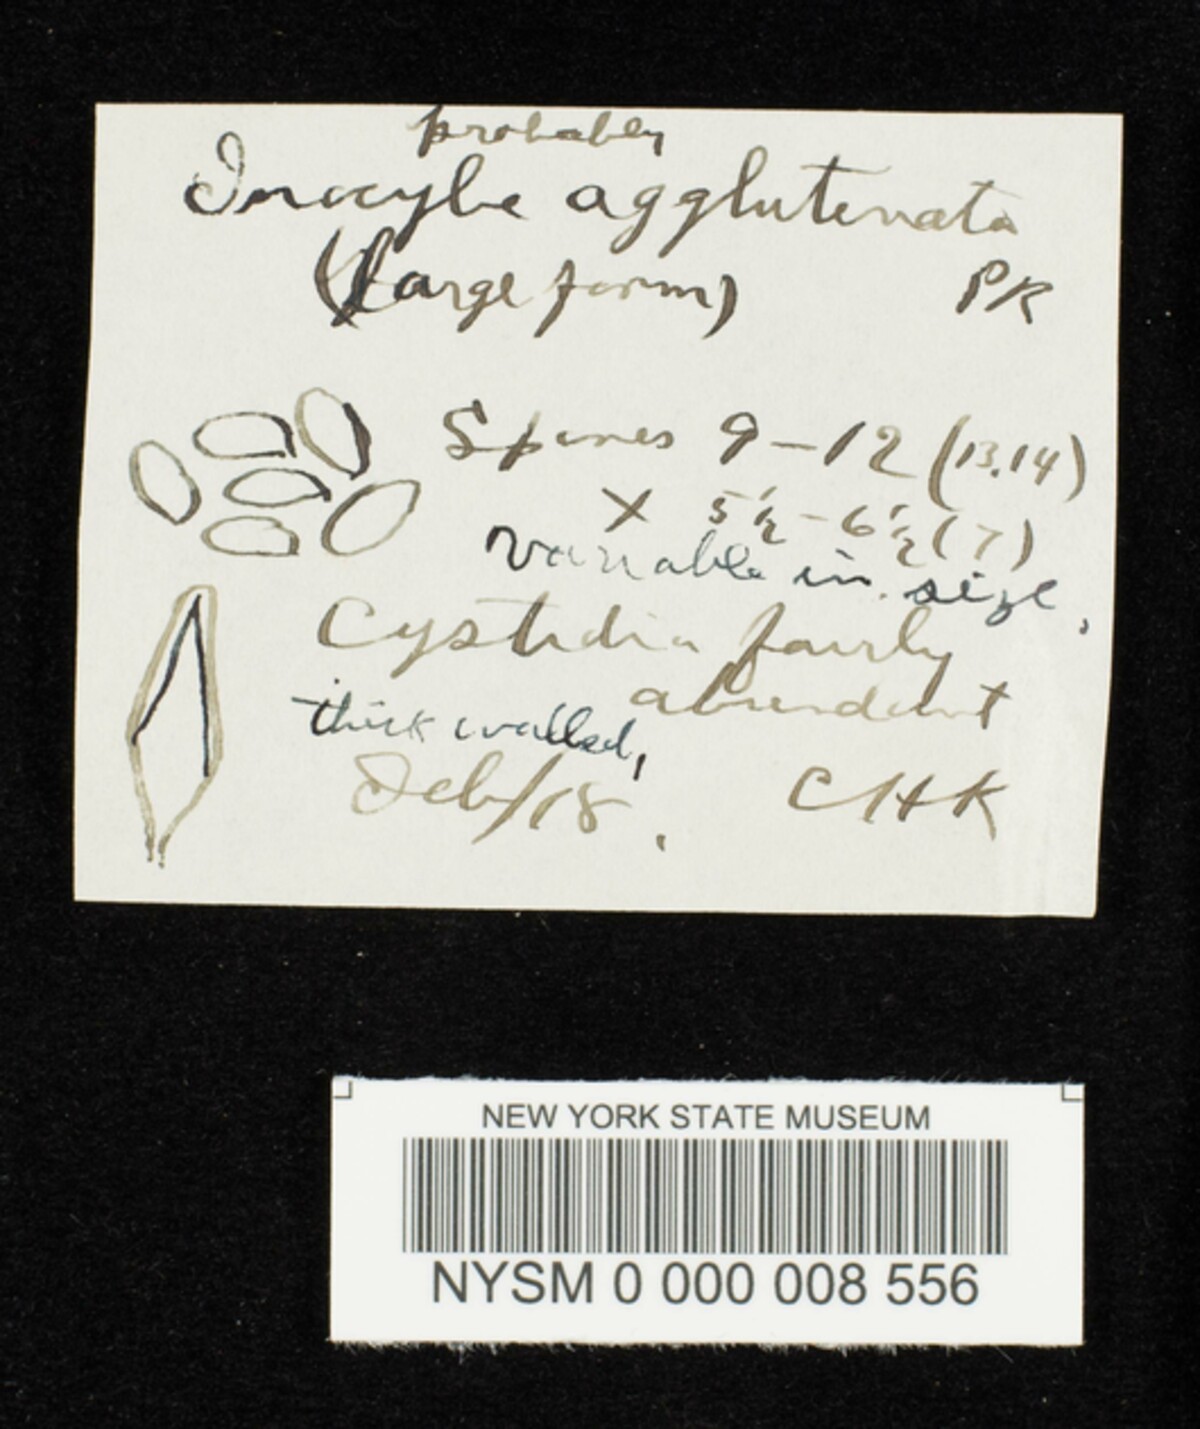 probably
Inocybe agglutenata
(large form) PK
Spores 9-12 (13.14)
X 5½-6½ (7)
variable in size,
Cystidia fairly
abundant
thick walled,
Feb/18. CHK
NEW YORK STATE MUSEUM
NYSM 0 000 008 556